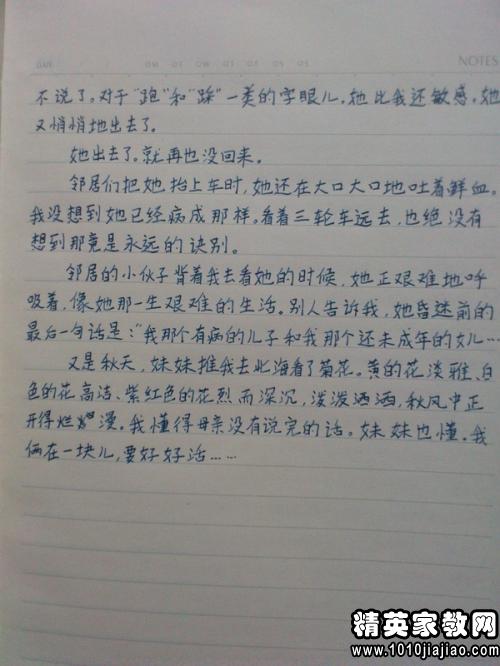 DATE
NOTES
不说了。对于“跑”和“踩”一类的字眼儿，她比我还敏感。她
又悄悄地出去了。
她出去了。就再也没回来。
邻居们把她抬上车时，她还在大口大口地吐着鲜血。
我没想到她已经病成那样。看着三轮车远去，也绝没有
想到那竟是永远的诀别。
邻居的小伙子背着我去看她的时候，她正艰难地呼
吸着，像她那一生艰难的生活。别人告诉我，她昏迷前的
最后一句话是：“我那个有病的儿子和我那个还未成年的女儿…
又是秋天，妹妹推我去北海看了菊花。黄的花淡雅、白
色的花高洁、紫红色的花烈而深沉，泼泼洒洒，秋风中正
开得烂漫。我懂得母亲没有说完的话。妹妹也懂。我
俩在一块儿，要好好活……
精英家教网
www.1010jiajiao.com